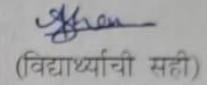 (विद्यार्थ्याची सही)